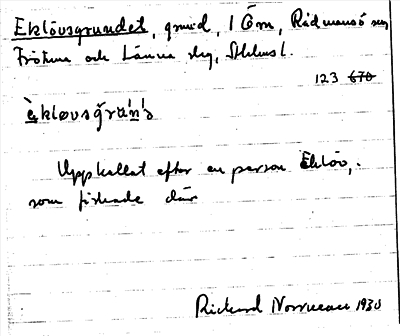 Eklövsgrundet, grund, I Öm, Rådmansö sn,
Frötuna och Länna slg, Sthlms l.
123 670
èkløvsgrun's
Uppkallat efter en person Eklöv,
som fiskade där
Rickard Norrman 1930